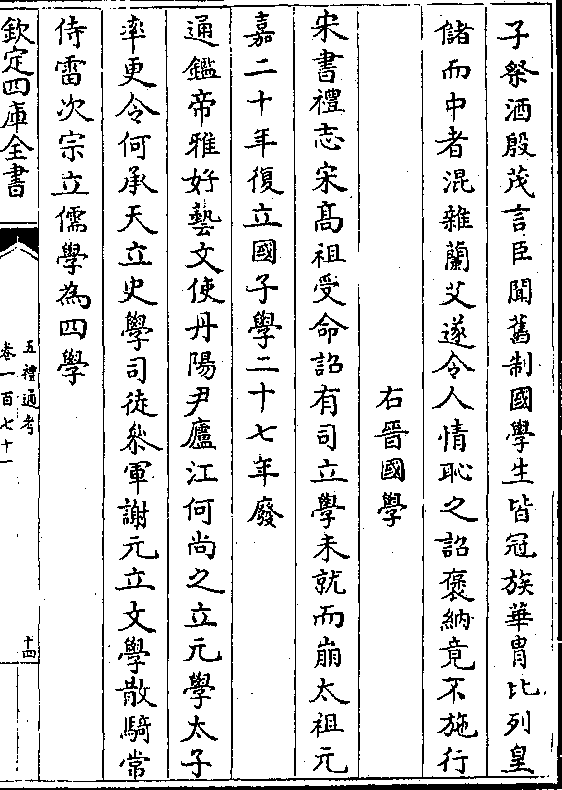 子祭酒殷茂言臣聞舊制國學生皆冠族華胄比列皇
儲而中者混雜蘭艾遂令人情恥之詔褒納竟不施行
右晉國學
宋書禮志宋髙祖受命詔有司立學未就而崩太祖元
嘉二十年復立國子學二十七年廢
通鑑帝雅好藝文使丹陽尹廬江何尚之立元學太子
率更令何承天立史學司徒叅軍謝元立文學散騎常
侍雷次宗立儒學為四學
欽定四庫全書
五禮通考
卷一百七十一
十四